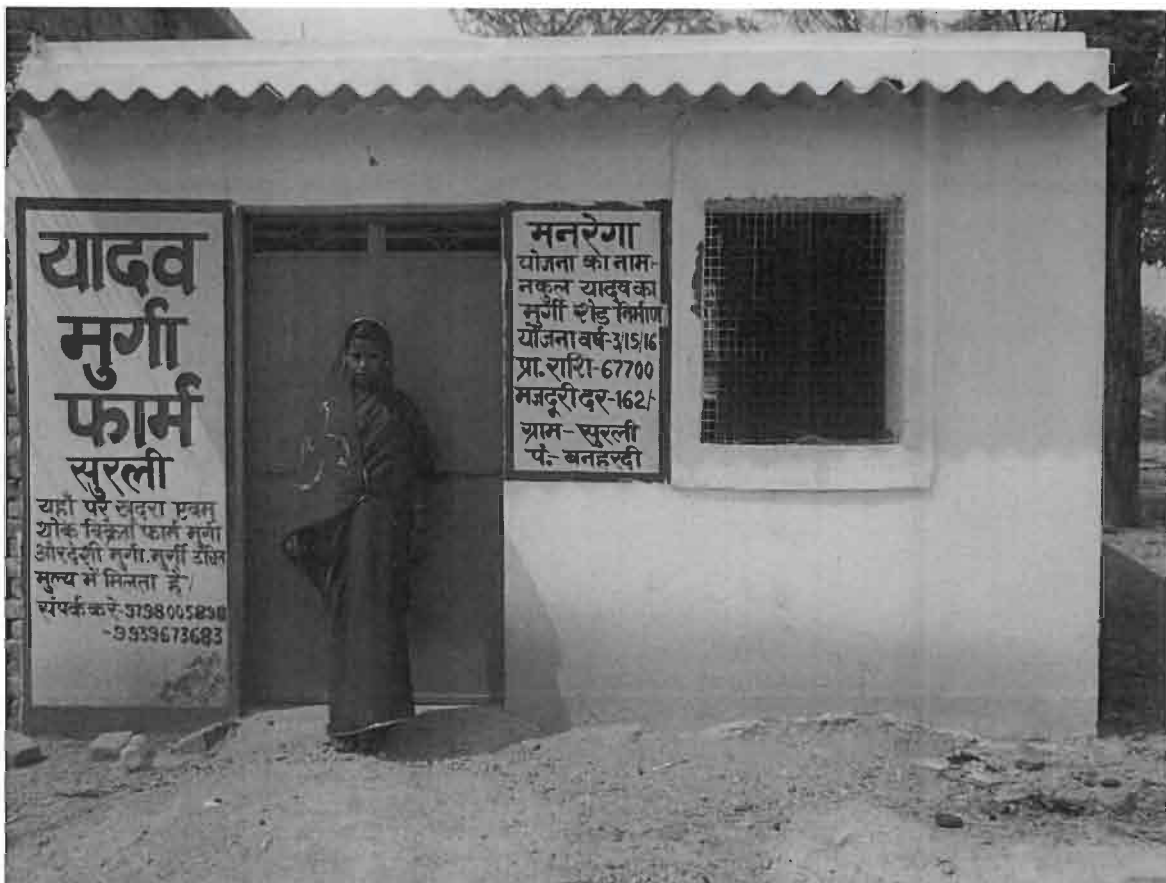 यादव
मुर्गा
फार्म
सुरली
यहाँ पर खुदरा एवम्
थोक विक्रेता फार्म मुर्गा
और देशी मुर्गा. मुर्गी उचित
मुल्य में मिलता है/
संपर्क करे-9798005898
-9939673683
मनरेगा
योजना का नाम-
नकुल यादव का
मुर्गी शेड निर्माण
योजना वर्ष-3/15/16
प्रा. राशि-67700
मजदूरी दर-162/-
ग्राम-सुरली
पं.-बनहरदी